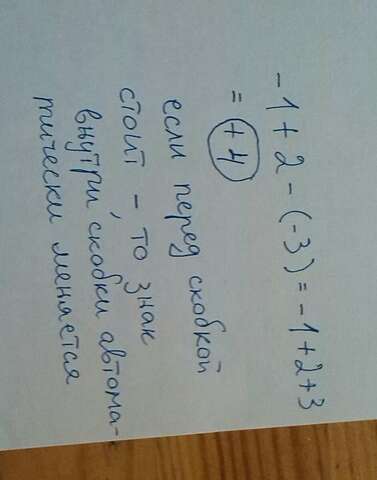 -1+2-(-3)=-1+2+3
= +4
если перед скобкой
стоит -, то знак
внутри скобки автома-
тически меняется